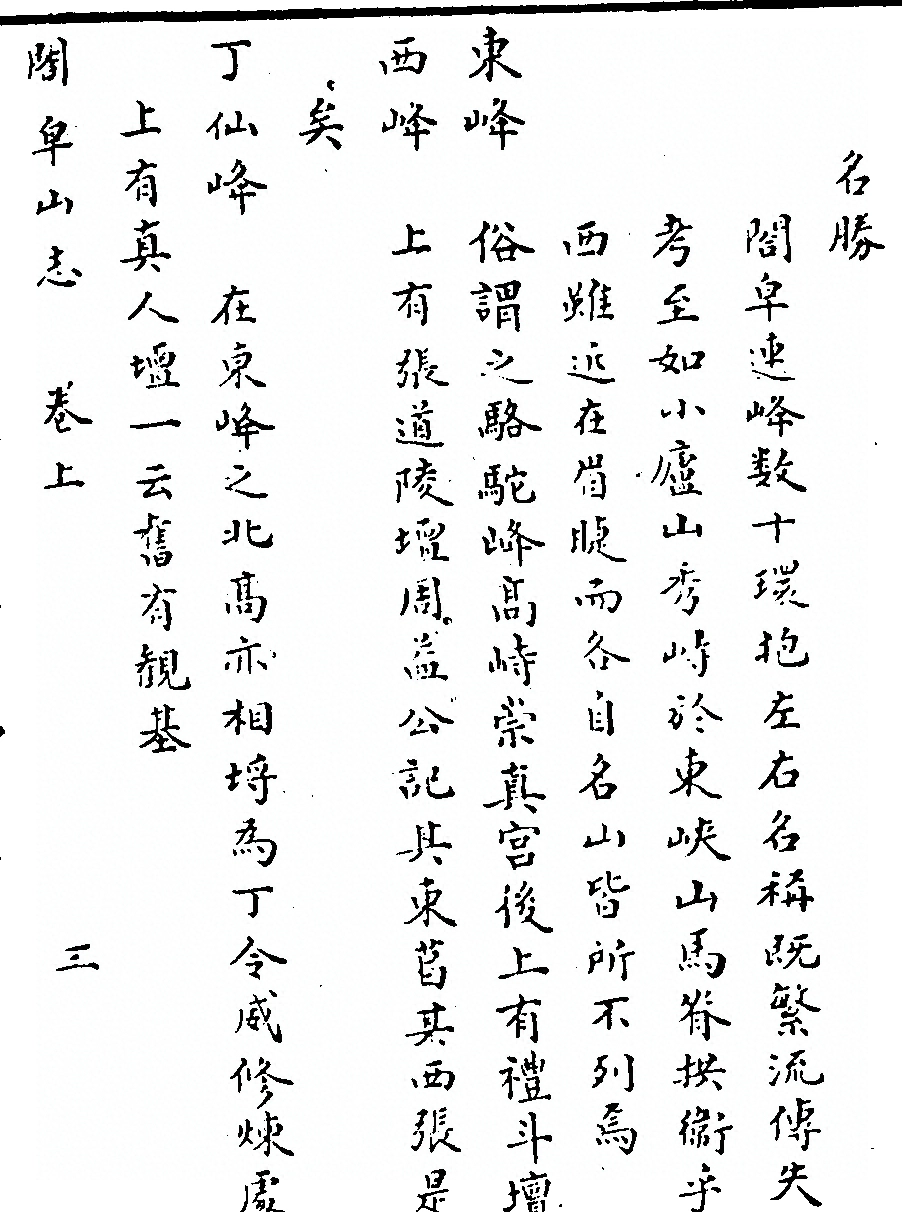 名勝
閤皁連峰数十環抱左右名稱既繁流傳失
考至如小廬山秀峙於東峽山馬脊拱衞乎
西雖近在眉睫而各自名山皆所不列焉
東峰 俗謂之駱駝峰髙峙崇真宫後上有禮斗壇
西峰 上有張道陵壇周益公記其東葛其西張是
矣
丁仙峰 在東峰之北髙亦相埒為丁令威修煉處
上有真人壇一云舊有觀基
閤皁山志 卷上 三